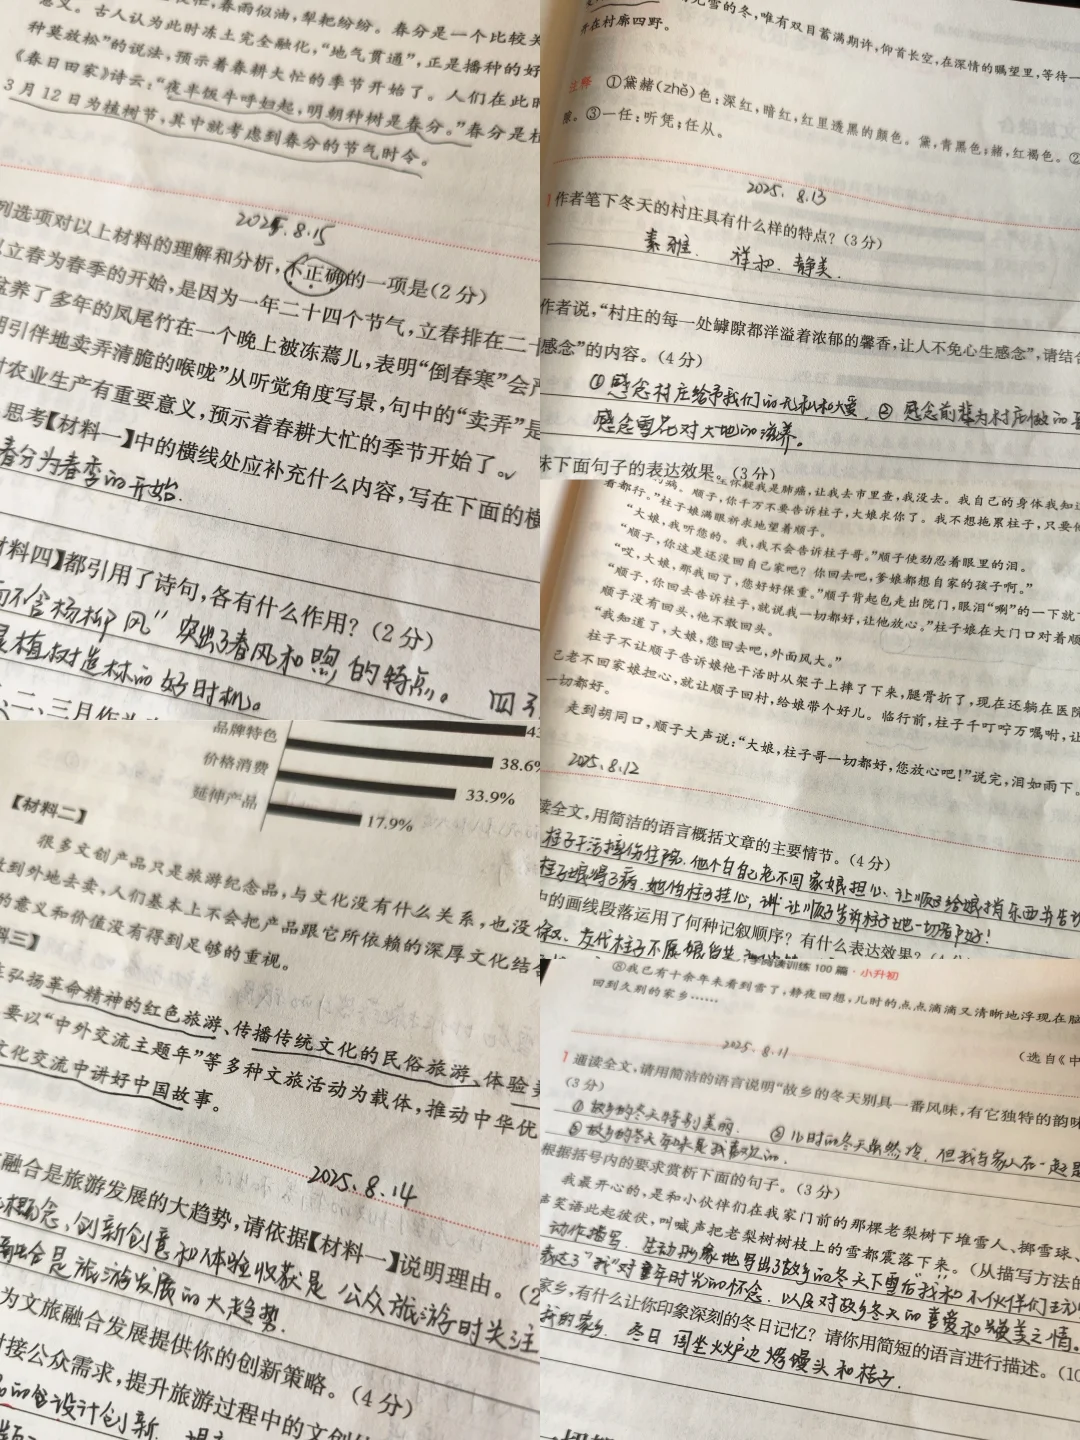 忙,春雨似油,犁耙纷纷。春分是一个比较关
意义。古人认为此时冻土完全融化,“地气贯通”,正是播种的好
种莫放松”的说法,预示着春耕大忙的季节开始了。人们在此时
《春日田家》诗云:“夜半饭牛呼妇起,明朝种树是春分。”春分是植
3月12日为植树节,其中就考虑到春分的节气时令。
2025.8.15
列选项对以上材料的理解和分析,不正确的一项是(2分)
以立春为春季的开始,是因为一年二十四个节气,立春排在二十
盆养了多年的凤尾竹在一个晚上被冻蔫儿,表明“倒春寒”会严
朋引伴地卖弄清脆的喉咙”从听觉角度写景,句中的“卖弄”是
对农业生产有重要意义,预示着春耕大忙的季节开始了。
思考【材料一】中的横线处应补充什么内容,写在下面的横
春分为春季的开始.
材料四】都引用了诗句,各有什么作用?(2分)
面不含杨柳风”突出了春风和煦的特点。 四引
是植树造林的好时机。
、二、三月作为
雪的冬,唯有双目蓄满期许,仰首长空,在深情的瞩望里,等待一
开在村廓四野。
注释 ①黛赭(zhě)色:深红,暗红,红里透黑的颜色。黛,青黑色;赭,红褐色。②
隙。③一任:听凭;任从。
2025.8.13
1 作者笔下冬天的村庄具有什么样的特点?(3分)
素雅. 祥和. 静美.
作者说,“村庄的每一处罅隙都洋溢着浓郁的馨香,让人不免心生感念”,请结合
感念”的内容。(4分)
①感念村庄给予我们的无私和大爱. ②感念前辈为村庄做的
感念雪花对大地的滋养。
味下面句子的表达效果。(3分)
怀疑我是肺癌,让我去市里查,我没去。我自己的身体我知道
看都行。”柱子娘满眼祈求地望着顺子。
顺子,你千万不要告诉柱子,大娘求你了。我不想拖累柱子,只要他
“大娘,我听您的。我,我不会告诉柱子哥。”顺子使劲忍着眼里的泪。
“顺子,你这是还没回自己家吧?你回去吧,爹娘都想自家的孩子啊。”
“哎,大娘,那我回了,您好好保重。”顺子背起包走出院门,眼泪“唰”的一下就
“顺子,你回去告诉柱子,就说我一切都好,让他放心。”柱子娘在大门口对着顺
顺子没有回头,他不敢回头。
“我知道了,大娘,您回去吧,外面风大。”
柱子不让顺子告诉娘他干活时从架子上摔了下来,腿骨折了,现在还躺在医院
己老不回家娘担心,就让顺子回村,给娘带个好儿。临行前,柱子千叮咛万嘱咐,让
一切都好。
走到胡同口,顺子大声说:“大娘,柱子哥一切都好,您放心吧!”说完,泪如雨下。
2025.8.12
读全文,用简洁的语言概括文章的主要情节。(4分)
柱子干活摔伤住院.他怕自己老不回家娘担心、让顺子给娘捎东西并告诉
柱子娘得了病.她怕柱子担心,让顺子告诉柱子她一切都好!
中的画线段落运用了何种记叙顺序?有什么表达效果?
品牌特色
43
价格消费
38.6%
延伸产品
33.9%
17.9%
【材料二】
很多文创产品只是旅游纪念品,与文化没有什么关系,也没
放到外地去卖,人们基本上不会把产品跟它所依赖的深厚文化结合
的意义和价值没有得到足够的重视。
料三】
弘扬革命精神的红色旅游、传播传统文化的民俗旅游、体验
要以“中外交流主题年”等多种文旅活动为载体,推动中华优
文化交流中讲好中国故事。
2025.8.14
融合是旅游发展的大趋势,请依据【材料一】说明理由。(2
概念、创新创意和体验收获是公众旅游时关注
融合是旅游发展的大趋势.
为文旅融合发展提供你的创新策略。(4分)
对接公众需求,提升旅游过程中的文创
设计创新.
阅读训练100篇·小升初
⑧我已有十余年未看到雪了,静夜回想,儿时的点点滴滴又清晰地浮现在脑
回到久别的家乡……
2025.8.11
(选自《中
1 通读全文,请用简洁的语言说明“故乡的冬天别具一番风味,有它独特的韵味
(3分)
①故乡的冬天特别美丽. ②儿时的冬天虽然冷.但我与家人在一起是
③故乡的冬天年味是我喜欢的.
根据括号内的要求赏析下面的句子。(3分)
我最开心的,是和小伙伴们在我家门前的那棵老梨树下堆雪人、掷雪球、
声笑语此起彼伏,叫喊声把老梨树树枝上的雪都震落下来。(从描写方法的
动作描写.生动形象地写出了故乡的冬天下雪后“我”和小伙伴们玩
表达了“我”对童年时光的怀念.以及对故乡冬天的喜爱和赞美之情。
家乡,有什么让你印象深刻的冬日记忆?请你用简短的语言进行描述。(10
我的家乡.冬日围坐火炉边烤馒头和桔子.